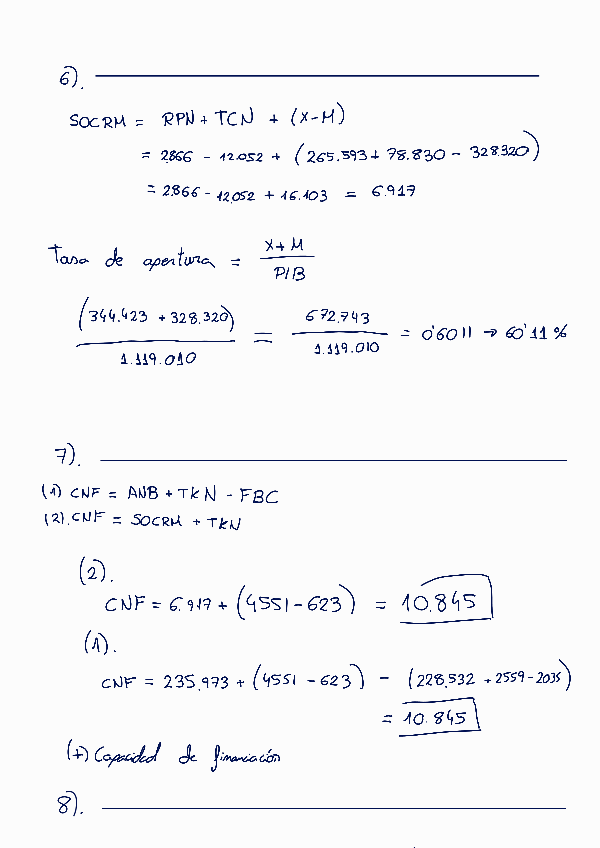 6).
SOCRM = RPN + TCN + (X-M)
= 2866 - 12.052 + (265.593 + 78.830 - 328.320)
= 2866 - 12.052 + 16.103 = 6.917
Tasa de apertura = X+M / PIB
(344.423 + 328.320) / 1.119.010 = 672.743 / 1.119.010 = 0'6011 → 60'11 %
7).
(1) CNF = ANB + TKN - FBC
(2). CNF = SOCRM + TKN
(2).
CNF = 6.917 + (4551 - 623) = 10.845
(1).
CNF = 235.973 + (4551 - 623) - (228.532 + 2559 - 2035)
= 10.845
(+) Capacidad de financiación
8).